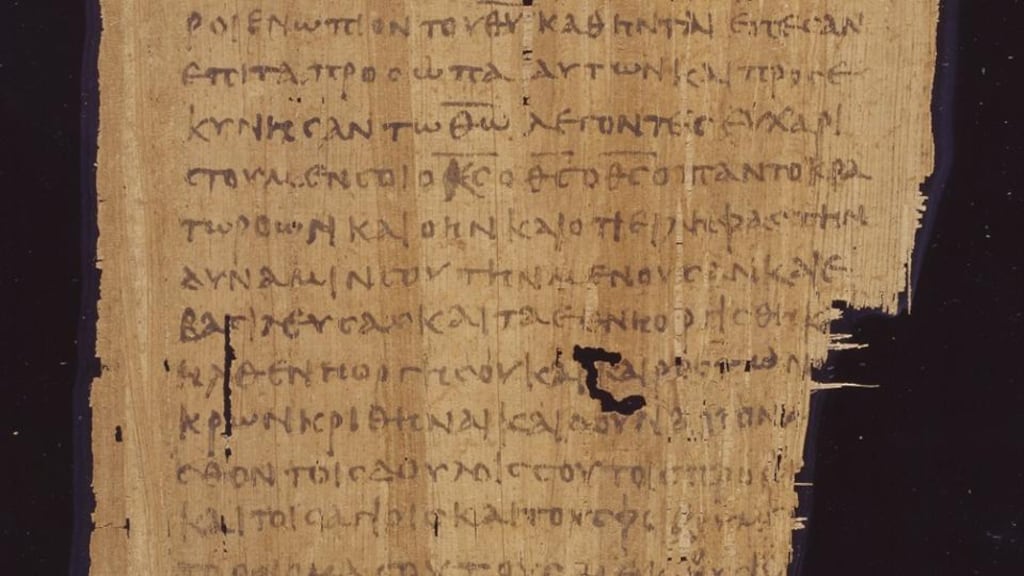 ΡΟΙ ΕΝΩΠΙΟΝ ΤΟΥ Θ̅Υ̅ ΚΑΘΗΝΤΑΙ ΕΠΕϹΑΝ
ΕΠΙ ΤΑ ΠΡΟϹΩΠΑ ΑΥΤΩΝ ΚΑΙ ΠΡΟϹΕ
ΚΥΝΗϹΑΝ ΤΩ Θ̅Ω̅ ΛΕΓΟΝΤΕϹ ΕΥΧΑΡΙ
ϹΤΟΥΜΕΝ ϹΟΙ Ο Κ̅Ϲ̅ Ο Θ̅Ϲ̅ Ο Θ̅Ϲ̅ Ο ΠΑΝΤΟΚΡΑ
ΤΩΡ Ο ΩΝ ΚΑΙ Ο ΗΝ ΚΑΙ ΟΤΙ ΕΙΛΗΦΑϹ ΤΗΝ
ΔΥΝΑΜΙΝ ϹΟΥ ΤΗΝ ΜΕΝΟΥϹΑΝ ΚΑΙ Ε
ΒΑϹΙΛΕΥϹΑϹ ΚΑΙ ΤΑ ΕΘΝΗ
ΗΛΘΕΝ Η ΟΡΓΗ ϹΟΥ ΚΑΙ ΚΑΙΡΟϹ ΤΩΝ
ΚΡΩΝ ΚΡΙΘΗΝΑΙ ΚΑΙ ΔΟΥΝΑΙ ΤΟΝ
ϹΘΟΝ ΤΟΙϹ ΔΟΥΛΟΙϹ ϹΟΥ ΤΟΙϹ
ΚΑΙ ΤΟΙϹ ΑΓΙΟΙϹ ΚΑΙ ΤΟΥϹ